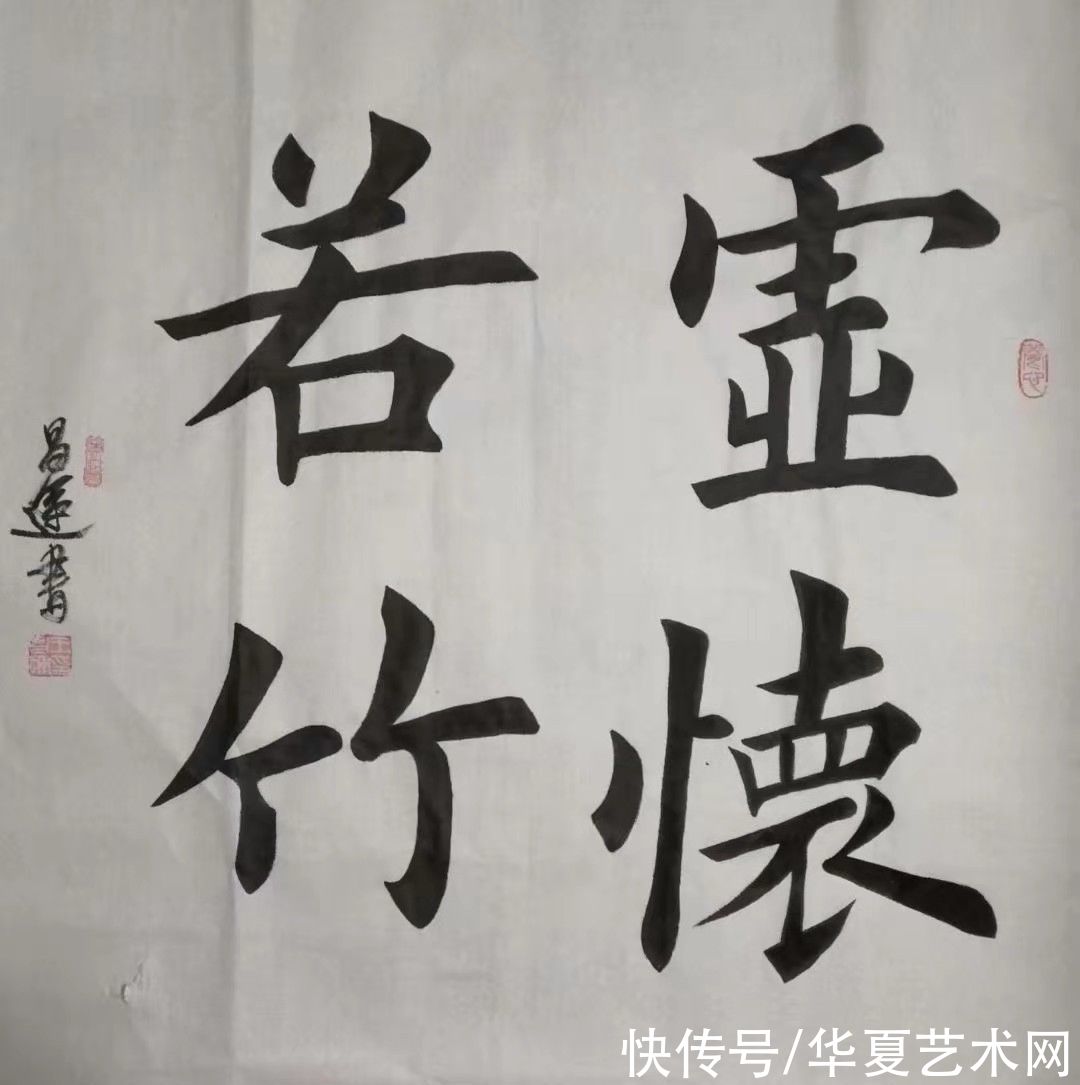 虚懷
若竹
昌运書
快传号/华夏艺术网